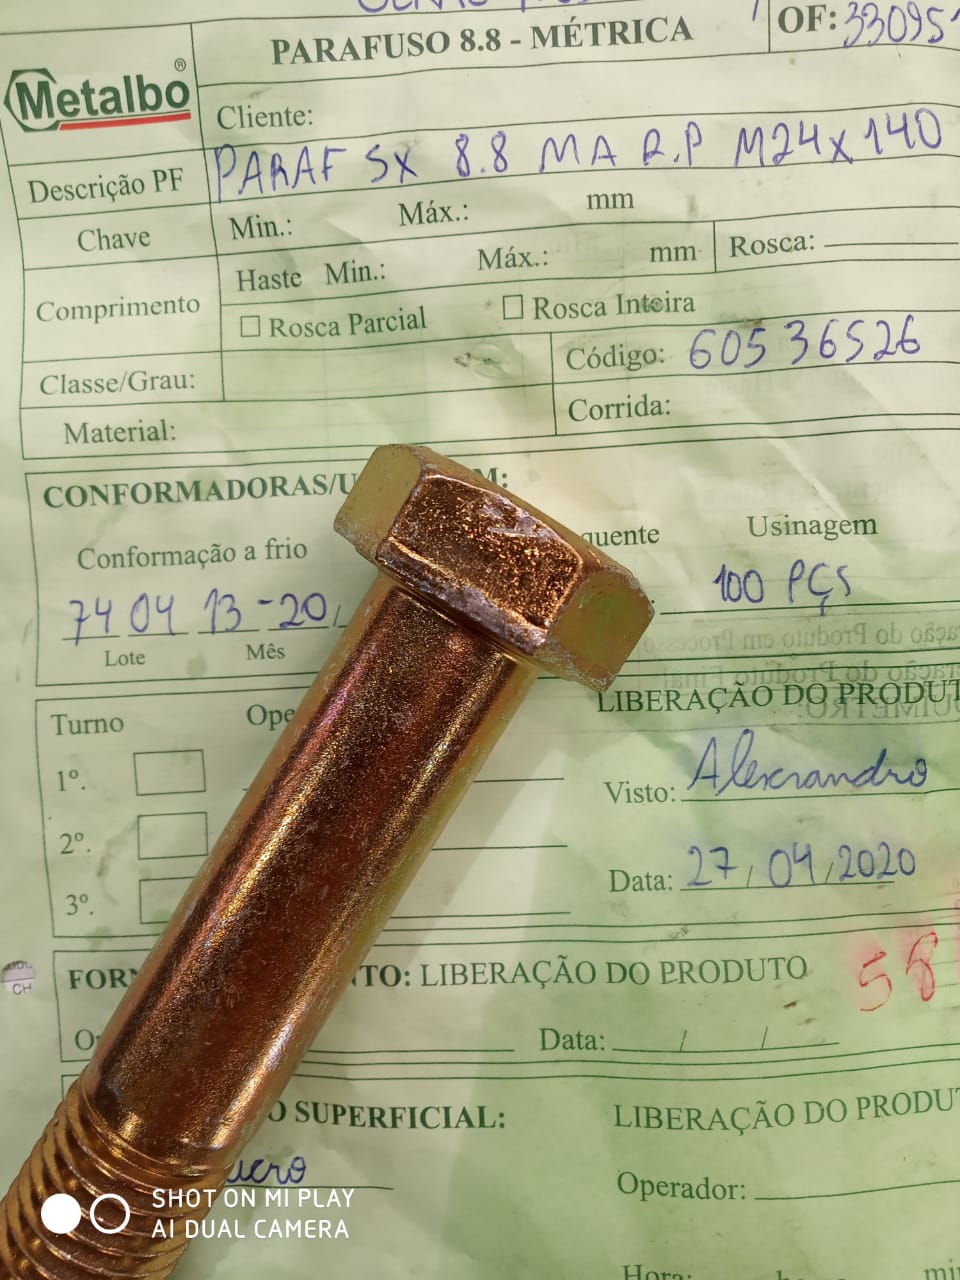 PARAFUSO 8.8 - MÉTRICA
OF: 330951
Metalbo®
Cliente:
Descrição PF PARAF SX 8.8 MA R.P M24x140
Chave Min.: Máx.: mm
Comprimento Haste Min.: Máx.: mm Rosca:
Rosca Parcial Rosca Inteira
Classe/Grau: Código: 60536526
Material: Corrida:
CONFORMADORAS/U
M:
Conformação a frio quente Usinagem
74 04 13-20 100 PÇS
Lote Mês
LIBERAÇÃO DO PRODUT
Turno Ope
1º.
Visto: Alexandro
2º.
Data: 27/04/2020
3º.
58
FOR TO: LIBERAÇÃO DO PRODUTO
CH
O Data: / /
O SUPERFICIAL: LIBERAÇÃO DO PRODUT
Operador:
SHOT ON MI PLAY
AI DUAL CAMERA
Hora: h mi